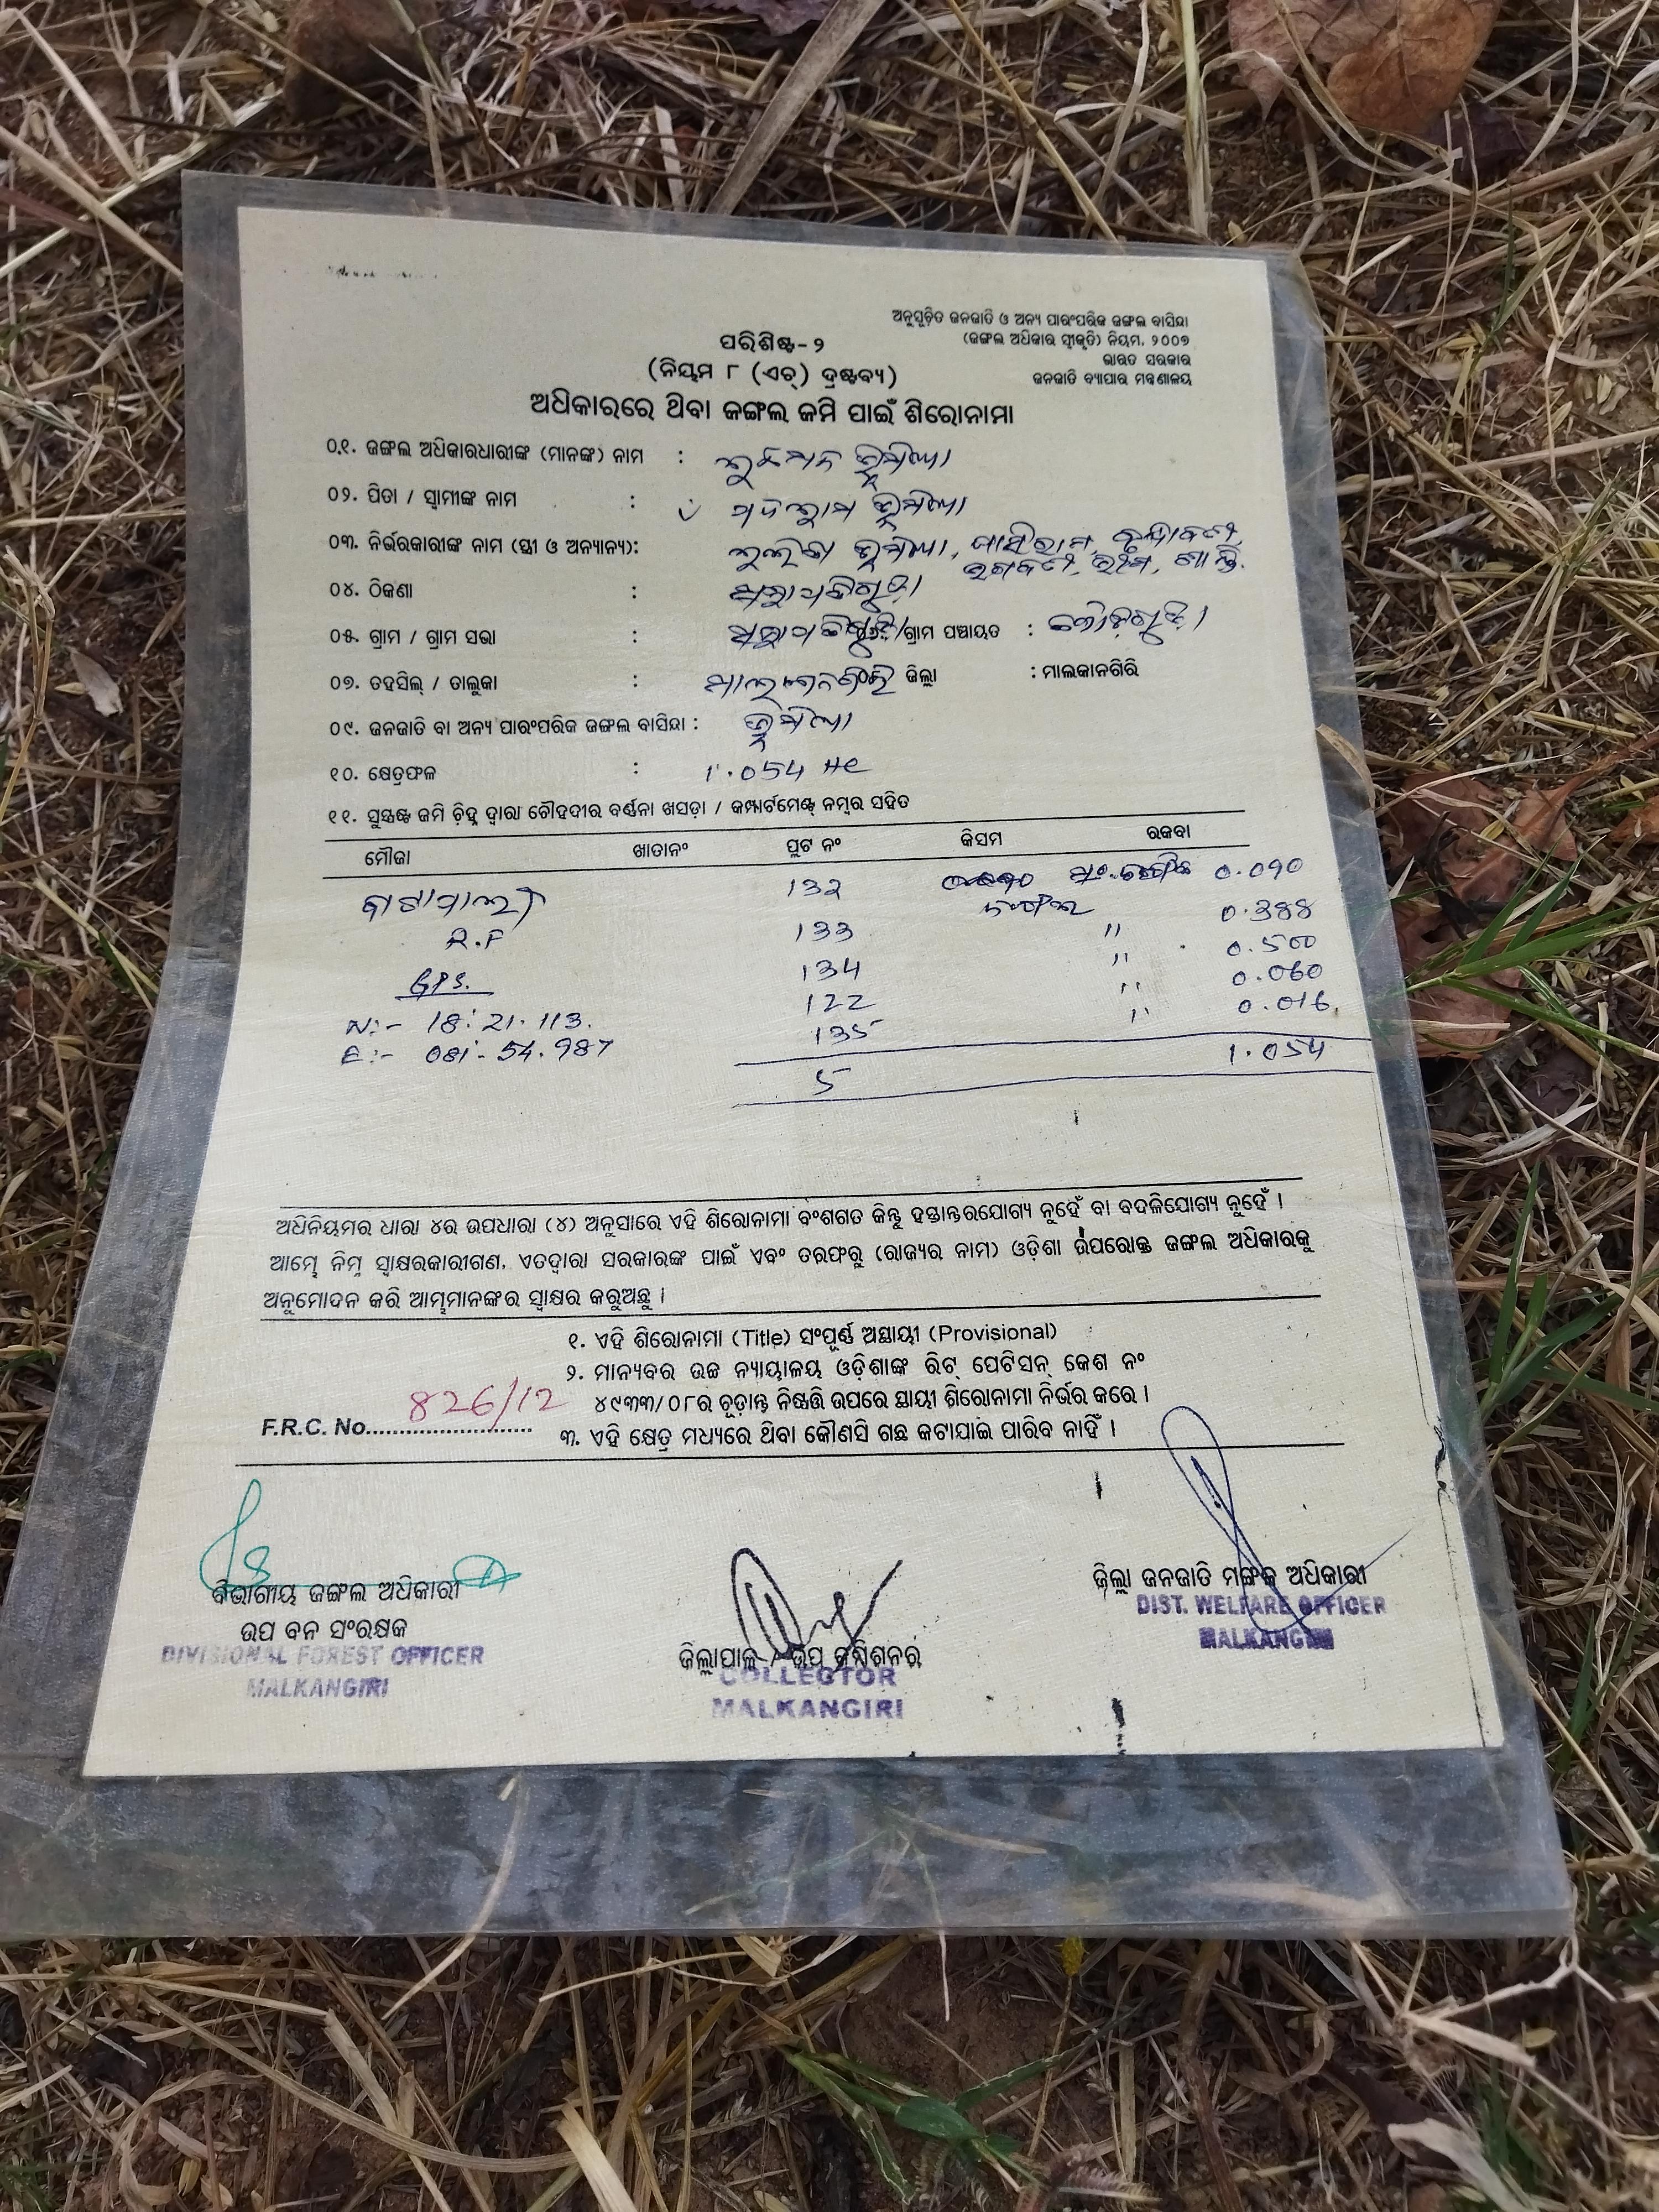 ଅନୁସୂଚିତ ଜନଜାତି ଓ ଅନ୍ୟ ପାରଂପରିକ ଜଙ୍ଗଲ ବାସିନ୍ଦା
(ଜଙ୍ଗଲ ଅଧିକାର ସ୍ୱୀକୃତି) ନିୟମ, ୨୦୦୭
ଭାରତ ସରକାର
ଜନଜାତି ବ୍ୟାପାର ମନ୍ତ୍ରଣାଳୟ
ପରିଶିଷ୍ଟ-୨
(ନିୟମ ୮ (ଏଚ୍) ଦ୍ରଷ୍ଟବ୍ୟ)
ଅଧିକାରରେ ଥିବା ଜଙ୍ଗଲ ଜମି ପାଇଁ ଶିରୋନାମା
୦୧. ଜଙ୍ଗଲ ଅଧିକାରଧାରୀଙ୍କ (ମାନଙ୍କ) ନାମ : ଭୂମିୟା
୦୨. ପିତା / ସ୍ୱାମୀଙ୍କ ନାମ : ଭୂମିୟା
୦୩. ନିର୍ଭରକାରୀଙ୍କ ନାମ (ସ୍ତ୍ରୀ ଓ ଅନ୍ୟାନ୍ୟ): ଭୂମିୟା,
୦୪. ଠିକଣା :
୦୫. ଗ୍ରାମ / ଗ୍ରାମ ସଭା : ଗ୍ରାମ ପଞ୍ଚାୟତ :
୦୭. ତହସିଲ୍ / ତାଲୁକା : ମାଲକାନଗିରି ଜିଲ୍ଲା : ମାଲକାନଗିରି
୦୯. ଜନଜାତି ବା ଅନ୍ୟ ପାରଂପରିକ ଜଙ୍ଗଲ ବାସିନ୍ଦା : ଭୂମିୟା
୧୦. କ୍ଷେତ୍ରଫଳ : 1.054 He
୧୧. ସୁସ୍ପଷ୍ଟ ଜମି ଚିହ୍ନ ଦ୍ୱାରା ଚୌହଦୀର ବର୍ଣ୍ଣନା ଖସଡ଼ା / କମ୍ପାର୍ଟମେଣ୍ଟ୍ ନମ୍ବର ସହିତ
ମୌଜା ଖାତାନଂ ପ୍ଲଟ ନଂ କିସମ ରକବା
132 0.090
R.F 133 " 0.388
134 " 0.500
GPS. 122 " 0.060
N:- 18° 21. 113. 135 " 0.016
E:- 081°- 54. 987 1.054
5
ଅଧିନିୟମର ଧାରା ୪ର ଉପଧାରା (୪) ଅନୁସାରେ ଏହି ଶିରୋନାମା ବଂଶଗତ କିନ୍ତୁ ହସ୍ତାନ୍ତରଯୋଗ୍ୟ ନୁହେଁ ବା ବଦଳିଯୋଗ୍ୟ ନୁହେଁ ।
ଆମ୍ଭେ ନିମ୍ନ ସ୍ୱାକ୍ଷରକାରୀଗଣ, ଏତଦ୍ୱାରା ସରକାରଙ୍କ ପାଇଁ ଏବଂ ତରଫରୁ (ରାଜ୍ୟର ନାମ) ଓଡ଼ିଶା ଉପରୋକ୍ତ ଜଙ୍ଗଲ ଅଧିକାରକୁ
ଅନୁମୋଦନ କରି ଆମ୍ଭମାନଙ୍କର ସ୍ୱାକ୍ଷର କରୁଅଛୁ ।
୧. ଏହି ଶିରୋନାମା (Title) ସଂପୂର୍ଣ୍ଣ ଅସ୍ଥାୟୀ (Provisional)
୨. ମାନ୍ୟବର ଉଚ୍ଚ ନ୍ୟାୟାଳୟ ଓଡ଼ିଶାଙ୍କ ରିଟ୍ ପେଟିସନ୍ କେଶ ନଂ
୪୯୩୩/୦୮ର ଚୂଡ଼ାନ୍ତ ନିଷ୍ପତ୍ତି ଉପରେ ସ୍ଥାୟୀ ଶିରୋନାମା ନିର୍ଭର କରେ ।
F.R.C. No. 826/12
୩. ଏହି କ୍ଷେତ୍ର ମଧ୍ୟରେ ଥିବା କୌଣସି ଗଛ କଟାଯାଇ ପାରିବ ନାହିଁ ।
ବିଭାଗୀୟ ଜଙ୍ଗଲ ଅଧିକାରୀ
ଉପ ବନ ସଂରକ୍ଷକ
DIVISIONAL FOREST OFFICER
MALKANGIRI
ଜିଲ୍ଲାପାଳ / ଉପ କମିଶନର
COLLECTOR
MALKANGIRI
ଜିଲ୍ଲା ଜନଜାତି ମଙ୍ଗଳ ଅଧିକାରୀ
DIST. WELFARE OFFICER
MALKANGIRI